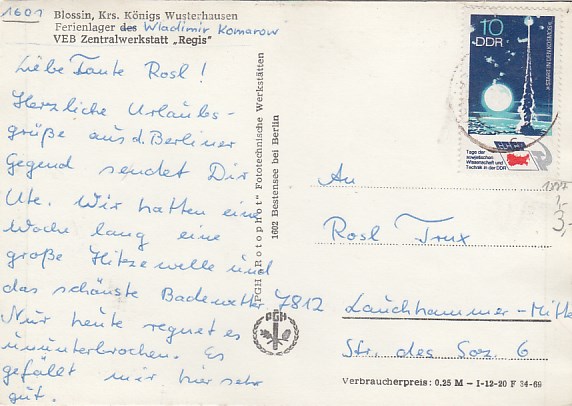 1601
Blossin, Krs. Königs Wusterhausen
Ferienlager des Wladimir Komarow
VEB Zentralwerkstatt „Regis"
Liebe Tante Rosl!
Herzliche Urlaubs-
grüße aus d. Berliner
Gegend sendet Dir
Ute. Wir hatten eine
Woche lang eine
große Hitzewelle und
das schönste Badewetter
Nur heute regnet es
ununterbrochen. Es
gefällt mir hier sehr
gut.
PGH „Rotophot" Fototechnische Werkstätten
1602 Bestensee bei Berlin
PGH
10
DDR
START IN DEN KOSMOS
Tage der
sowjetischen
Wissenschaft und
Technik in der DDR
An
Rosl Trux
7812 Lauchhammer-Mitte
Str. des Soz. 6
3,-
Verbraucherpreis: 0,25 M – I-12-20 F 34-69